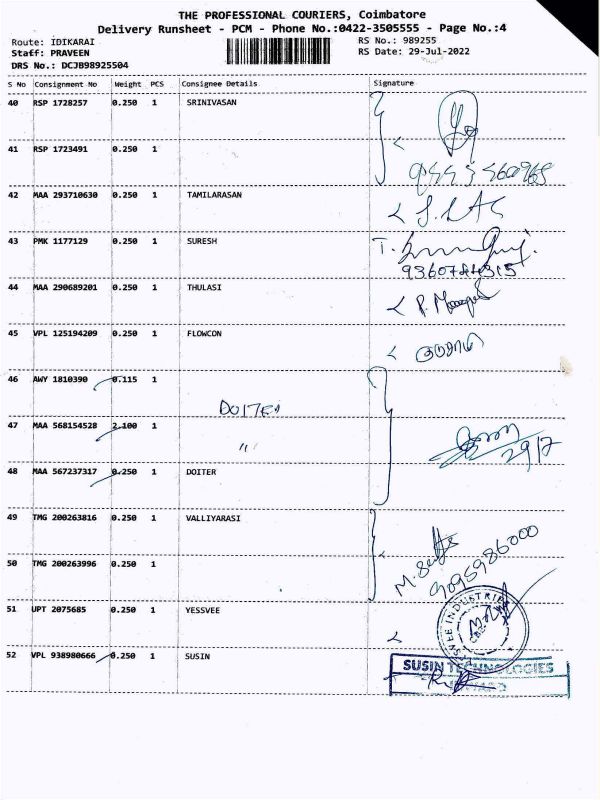 THE PROFESSIONAL COURIERS, Coimbatore
Delivery Runsheet - PCM - Phone No.:0422-3505555 - Page No.:4
Route: IDIKARAI
RS No.: 989255
Staff: PRAVEEN
RS Date: 29-Jul-2022
DRS No.: DCJB98925504
S No Consignment No Weight PCS Consignee Details Signature
40 RSP 1728257 0.250 1 SRINIVASAN
41 RSP 1723491 0.250 1
42 MAA 293710630 0.250 1 TAMILARASAN
43 PMK 1177129 0.250 1 SURESH
9360784515
44 MAA 290689201 0.250 1 THULASI
45 VPL 125194209 0.250 1 FLOWCON
46 AWY 1810390 0.115 1
DOITER
47 MAA 568154528 2.100 1 "
29/7
48 MAA 567237317 0.250 1 DOITER
49 TMG 200263816 0.250 1 VALLIYARASI
50 TMG 200263996 0.250 1
9095986000
51 UPT 2075685 0.250 1 YESSVEE
52 VPL 938980666 0.250 1 SUSIN
SUSIN TECHNOLOGIES